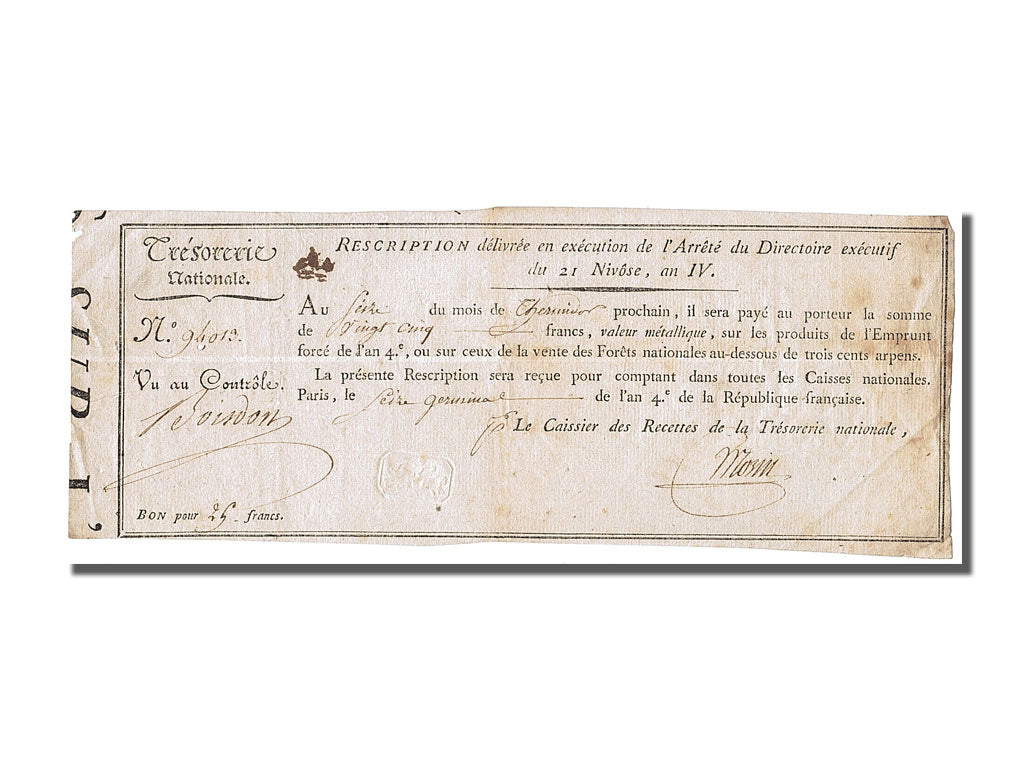 Trésorerie
Nationale.
RESCRIPTION délivrée en exécution de l'Arrêté du Directoire exécutif
du 21 Nivôse, an IV.
N.o 94013.
AU seize du mois de Thermidor prochain, il sera payé au porteur la somme
de Vingt cinq francs, valeur métallique, sur les produits de l'Emprunt
forcé de l'an 4.e, ou sur ceux de la vente des Forêts nationales au-dessous de trois cents arpens.
Vu au Contrôle.
La présente Rescription sera reçue pour comptant dans toutes les Caisses nationales.
Paris, le seize germinal de l'an 4.e de la République française.
Le Caissier des Recettes de la Trésorerie nationale,
Morin
BON pour 25 francs.